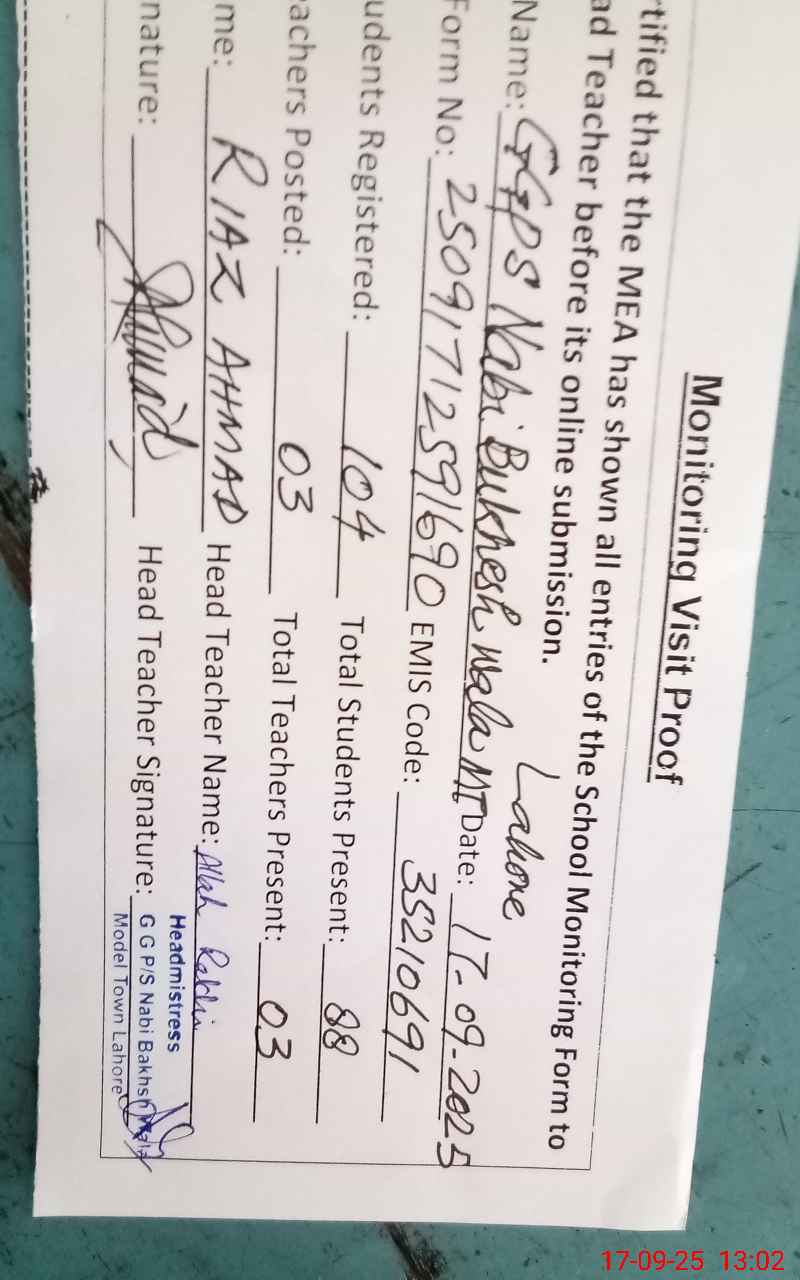 Monitoring Visit Proof
rtified that the MEA has shown all entries of the School Monitoring Form to
ad Teacher before its online submission.
Lahore
Name: GGPS Nabi Bukhesh Wala MT Date: 17-09-2025
Form No: 25091712591690 EMIS Code: 35210691
udents Registered: 104 Total Students Present: 88
achers Posted: 03 Total Teachers Present: 03
me: RIAZ AHMAD Head Teacher Name: Allah Rakhi
nature: Ahmad Head Teacher Signature:
Headmistress
G G P/S Nabi Bakhsh Wala
Model Town Lahore
17-09-25 13:02